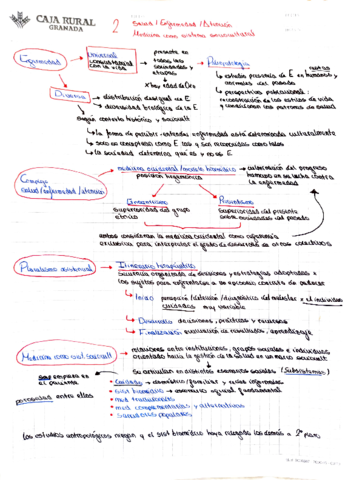 CAJA RURAL
GRANADA
2
Salud / Enfermedad / Atención
Medicina como sistema sociocultural
Enfermedad
Universal
consustancial
con la vida
presente en
todas las
sociedades y
etapas
Paleopatología
→ estudia presencia de E en humanos y
animales del pasado
→ perspectivas poblacionales:
reconstrucción de los estilos de vida
y condicionan los patrones de salud
Diversa
→ distribución desigual de E
→ diversidad biológica de la E
según contexto histórico y sociocult
↳ la forma de percibir-entender enfermedad está determinada culturalmente
↳ solo se conceptúan como E las q son reconocidas como tales
↳ la sociedad determina qué es y no es E
Complejo
salud/enfermedad/atención
→ medicina occidental/modelo biomédico
posición hegemónica
→ valoración del progreso
humano en su lucha contra
la enfermedad
Etnocentrismo
Superioridad del grupo
étnico
Presentismo
Superioridad del presente
sobre sociedades del pasado
ambos consideran la medicina occidental como referencia
exclusiva para interpretar el grado de desarrollo de otras sociedades
Pluralismo asistencial
→ Itinerario terapéutico
secuencia organizada de decisiones y estrategias adoptadas x
los sujetos para enfrentarse a un episodio concreto de padecer
↳ Inicio
percepción/detección/diagnóstico del malestar x el individuo
cuidados muy variable
↳ Desarrollo decisiones, prácticas y recursos
↳ Finalización evaluación de resultados, aprendizaje
Medicina como sist. sociocult
→ relaciones entre instituciones, grupos sociales e individuos
orientados hacia la gestión de la salud en un marco sociocult.
se articulan en distintos escenarios sociales (Subsistemas)
empieza en
el paciente
porosidad entre ellos
• Cuidado → doméstico/familiar y redes informales
• sist biomédico → escenario actual fundamental
• med tradicionales
• med complementarias y alternativas
• saberes populares
Los estudios antropológicos niegan q el sist biomédico haya relegado los demás a 2º plano